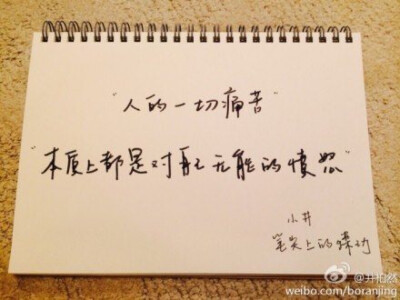 "人的一切痛苦"
"本质上都是对自己无能的愤怒"
小井
笔尖上的
@井柏然
weibo.com/boranjing